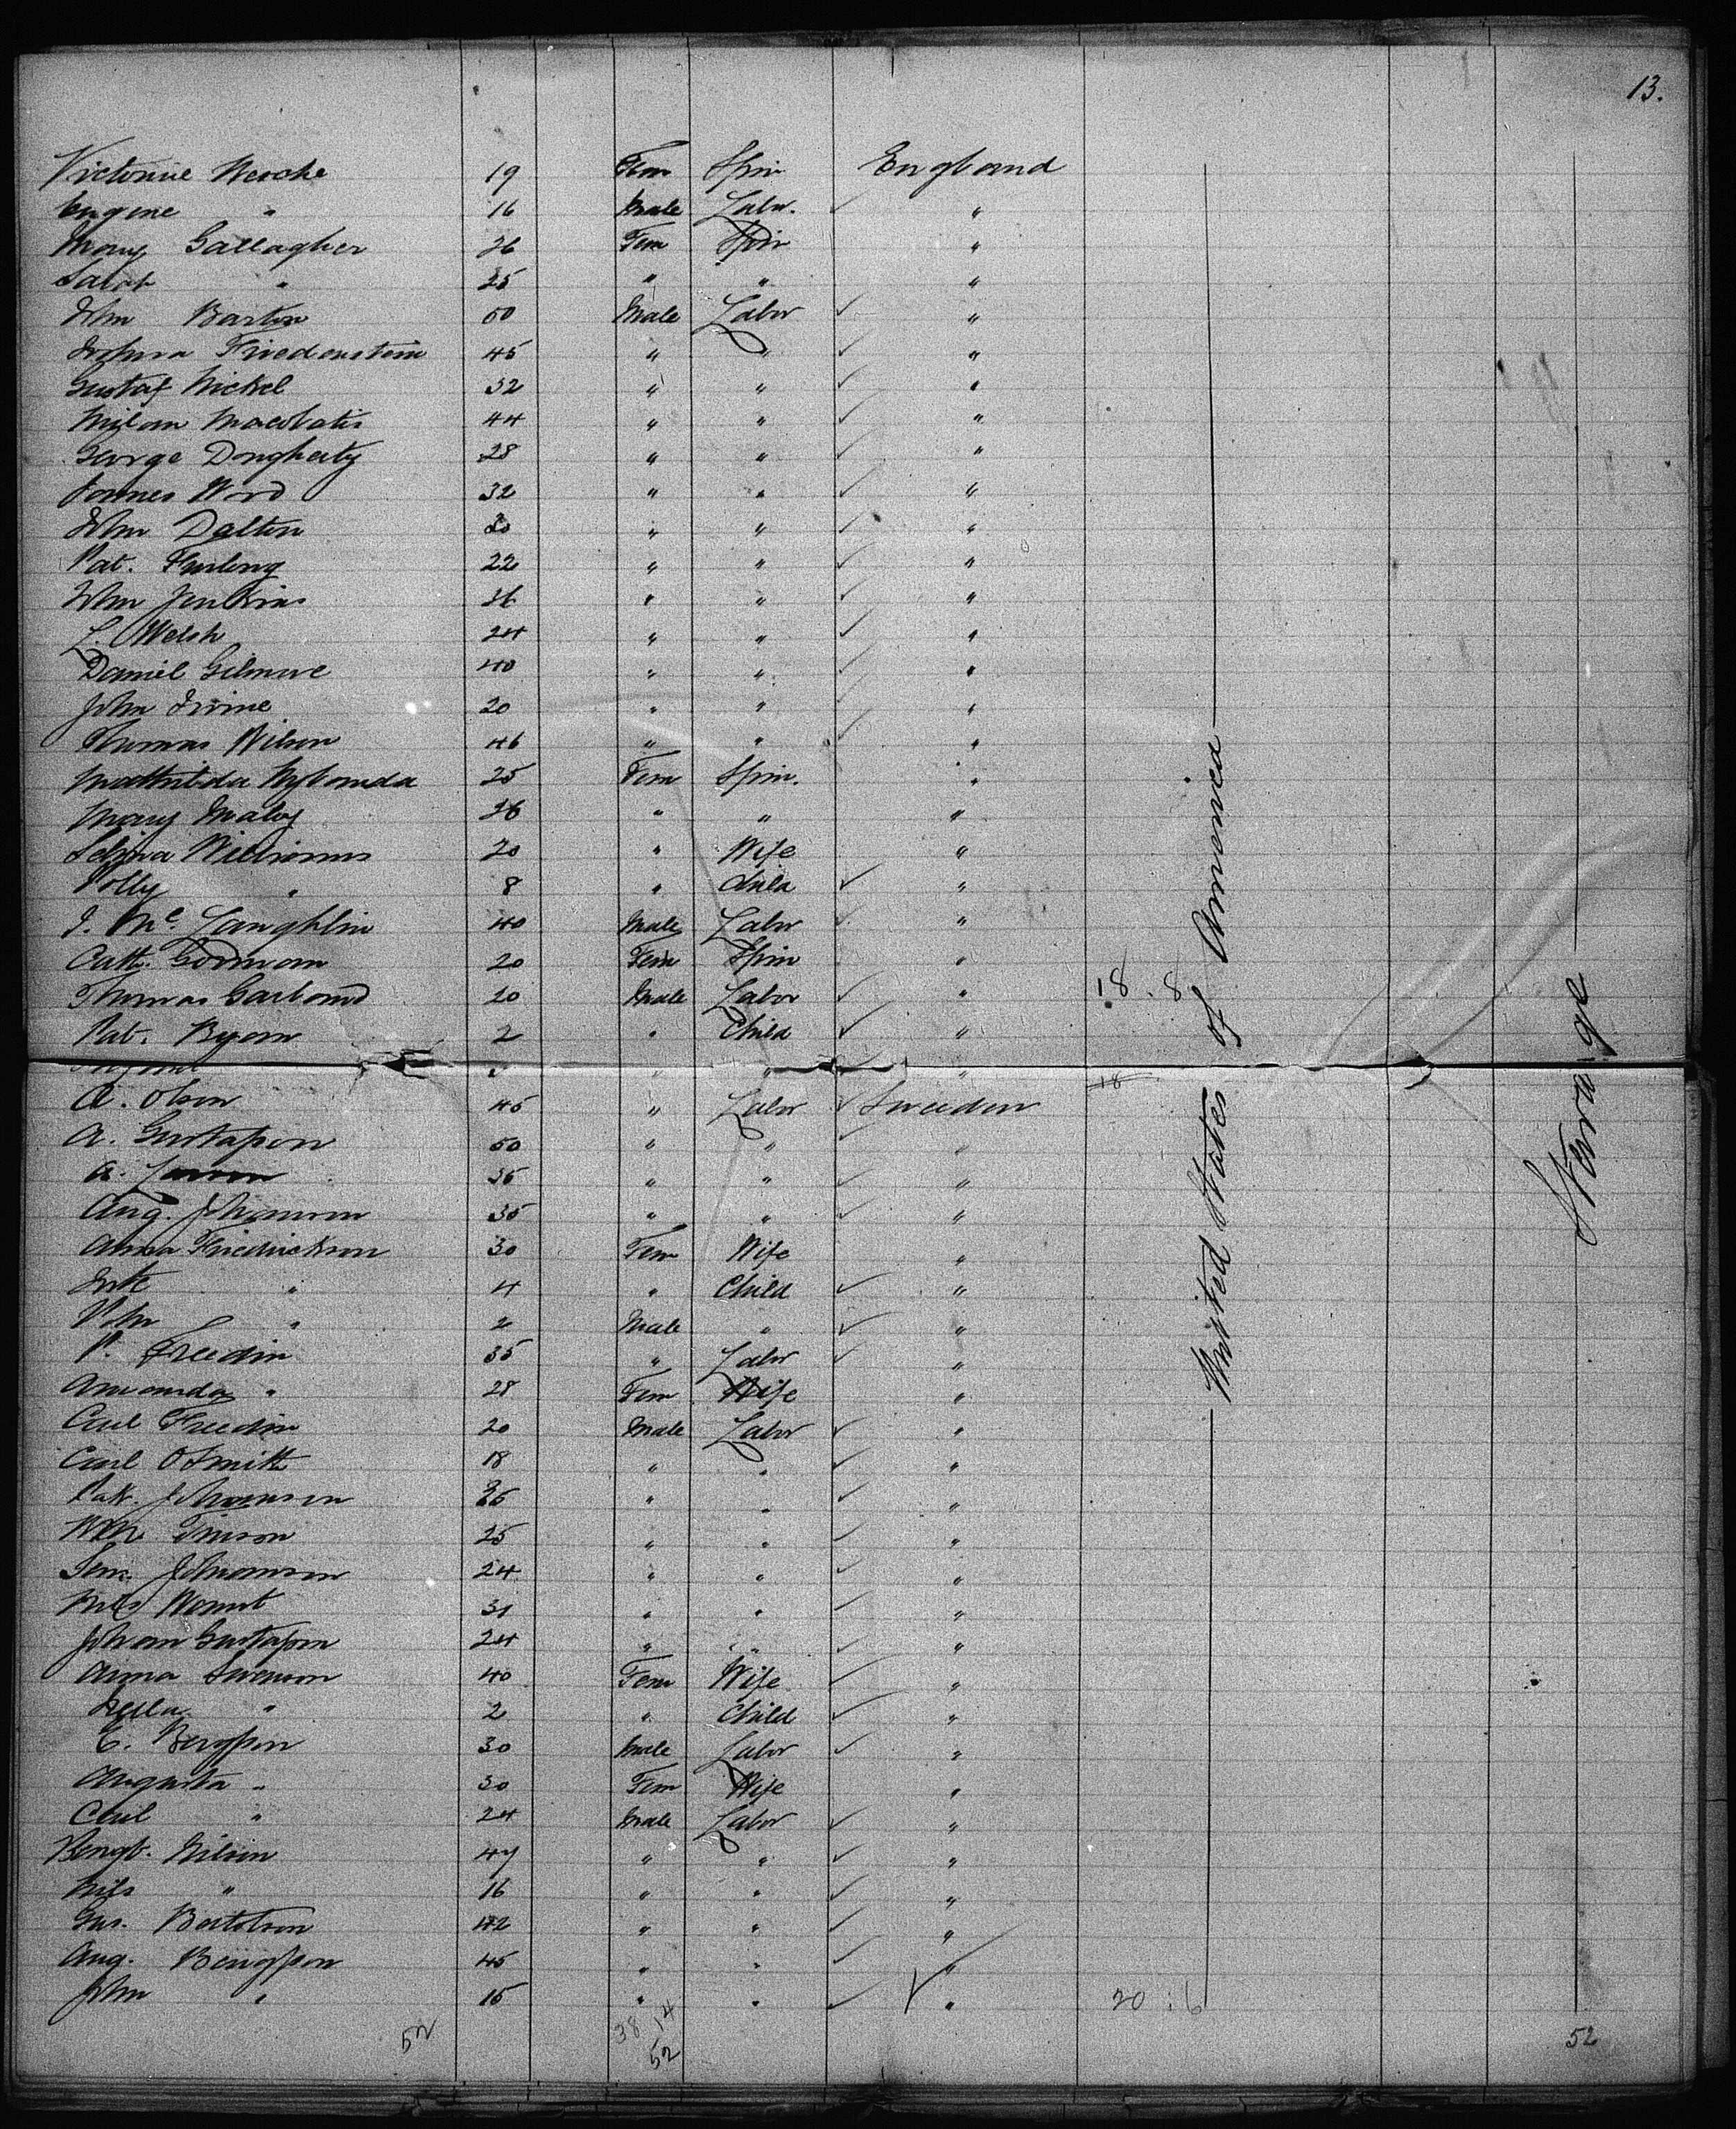 13.
Victorine 19 Fem Spin England
Eugene " 16 Male Labr. "
Mary Gallagher 26 Fem Spin "
Sarah " 25 " " "
John Barton 50 Male Labor "
Friedenstein 45 " " "
Gustaf Nickel 32 " " "
44 " " "
George Dougherty 28 " " "
James Ward 32 " " "
John Dalton 30 " " "
Pat. Furlong 22 " " "
Wm Jenkins 36 " " "
L. Welsh 24 " " "
Daniel Gilmore 40 " " "
John Irvine 20 " " "
Thomas Wilson 46 " " "
25 Fem Spin. "
Mary Maloy 26 " " "
Selina Williams 20 " Wife "
Polly " 8 " Child "
J. Mc Laughlin 40 Male Labor "
Cath. Gorman 20 Fem Spin "
Thomas Garland 20 Male Labor " 18. 8
Pat. Byorn 2 " Child "
" " "
A. Olson 45 " Labor Sweeden 18
A. Gustafson 50 " " "
A. Larson 35 " " "
Aug. Johanson 35 " " "
Anna Friedrickson 30 Fem Wife "
" 4 " Child "
" 2 Male " "
P. Freedin 35 " Labor "
Amanda " 28 Fem Wife "
Carl Freedin 20 Male Labor "
Carl O Smith 18 " " "
Johanson 25 " " "
25 " " "
Johanson 24 " " "
Nils 31 " " "
Johan Gustafson 24 " " "
Anna Swenson 40 Fem Wife "
" 2 " Child "
C. Bengtson 30 Male Labor "
Augusta " 30 Fem Wife "
Carl " 24 Male Labor "
Bengt. Nilson 47 " " "
Nils " 16 " " "
Gus. 42 " " "
Aug. Bengtson 45 " " "
John " 15 " " " 20 : 6
United States of America
Sterage
52 38 14 52
52